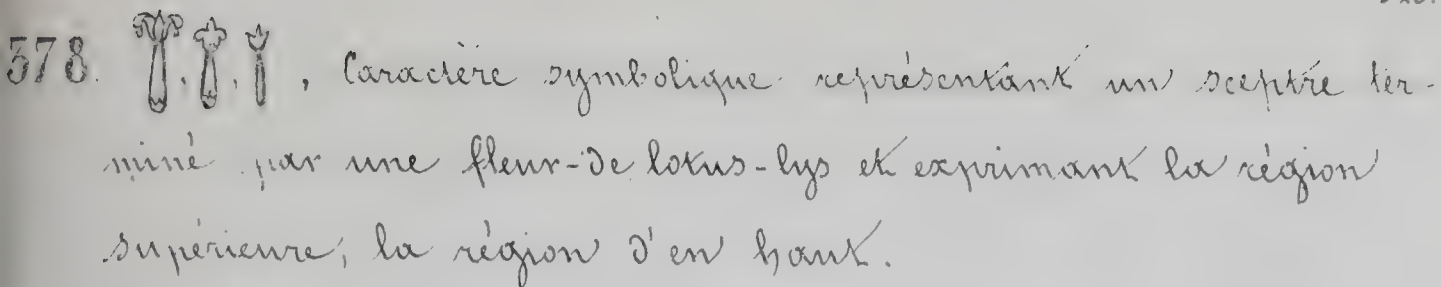 378. , Caractère symbolique représentant un sceptre ter-
miné par une fleur-de lotus-lys et exprimant la région
supérieure; la région d'en haut.